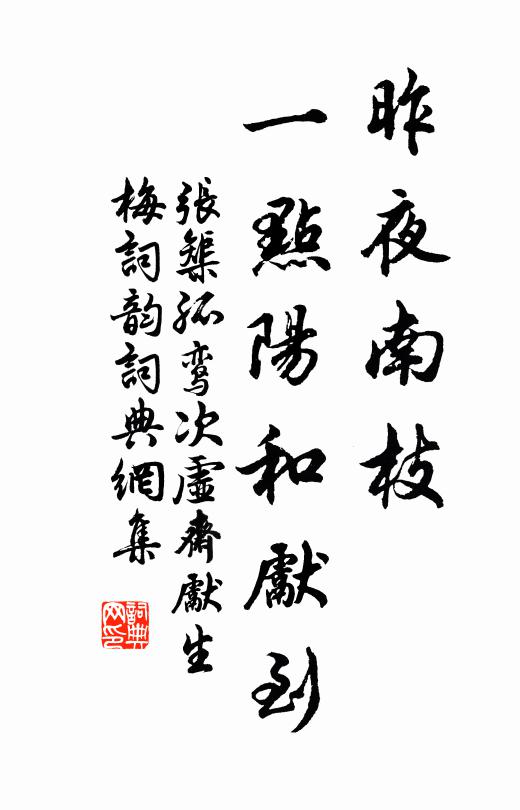 昨夜南枝
一點陽和獻到
張榘孤鸾次虛齋獻生
梅詞韵詞典網集
詞典
网印